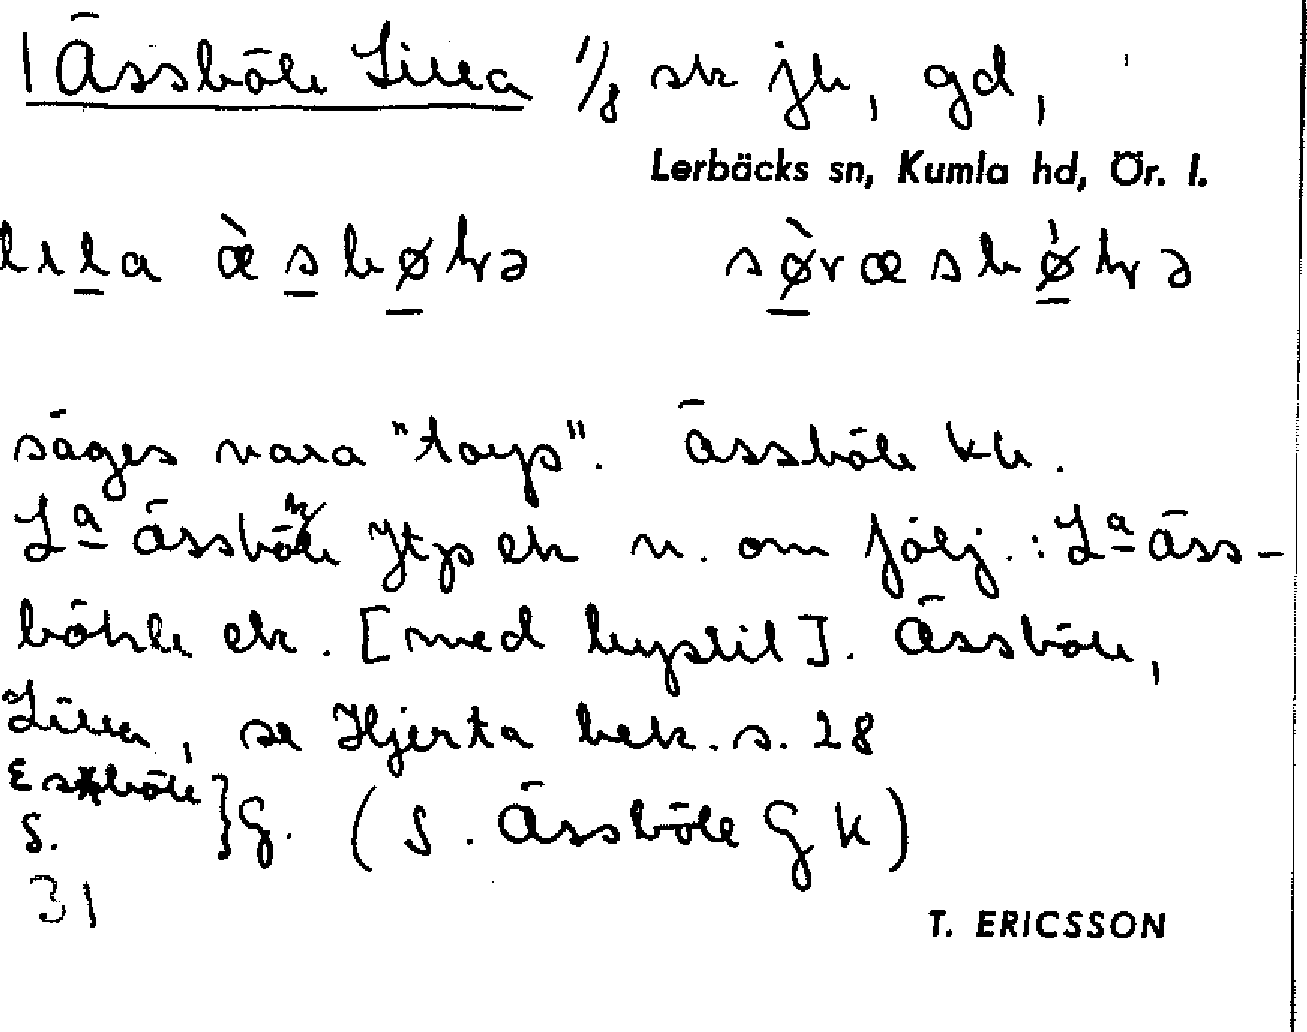 1 Ässböle Lilla 1/8 sk jb, gd,
Lerbäcks sn, Kumla hd, Ör. l.
lɩla æ̀sbøhrə sø̀ræsbø̀hrə
säges vara "torp". Ässböle kb.
La Ässböle Jtp ek n. om följ.: La Äss-
böhle ek. [med krystil]. Ässböle,
Lilla, se Hjerta bek. s. 28
Esböle
S. } G. (S. Ässböle G k)
31
T. ERICSSON